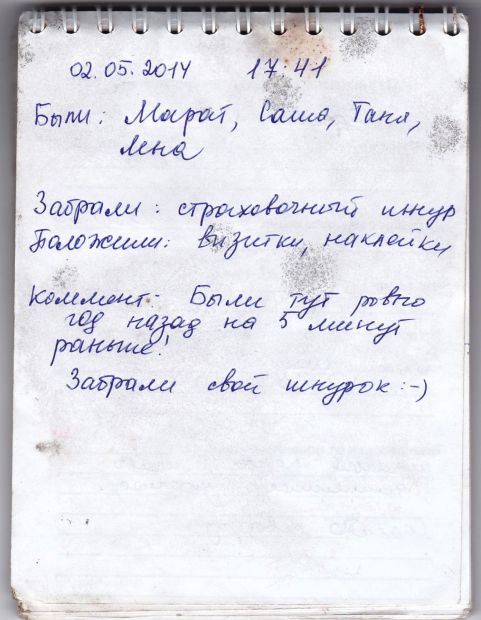 02.05.2014 17:41
Были: Марат, Саша, Таня,
Лена
Забрали: страховочный шнур
Положили: визитки, наклейки
Коммент: Были тут ровно
год назад на 5 минут
раньше!
Забрали свой шнурок :-)